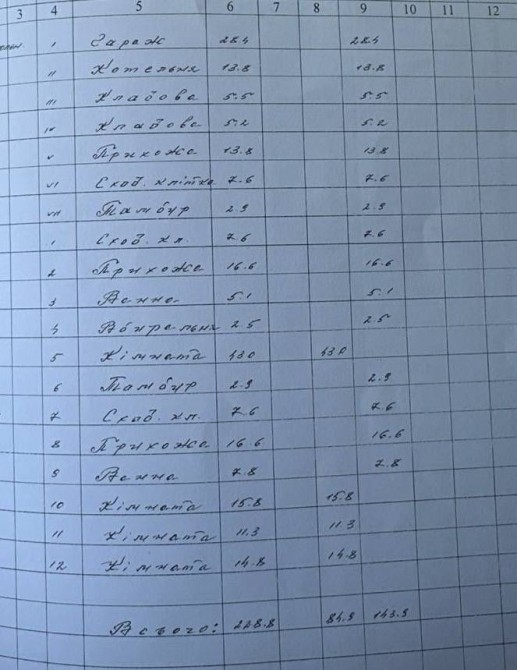 3 4 5 6 7 8 9 10 11 12
I Гараж 28.4 28.4
II Котельня 13.8 13.8
III Кладова 5.5 5.5
IV Кладова 5.2 5.2
V Прихожа 13.8 13.8
VI Сход. клітка 7.6 7.6
VII Тамбур 2.9 2.9
1 Сход. кл. 7.6 7.6
2 Прихожа 16.6 16.6
3 Ванна 5.1 5.1
4 Вбиральня 2.5 2.5
5 Кімната 43.0 43.0
6 Тамбур 2.9 2.9
7 Сход. кл. 7.6 7.6
8 Прихожа 16.6 16.6
9 Ванна 7.8 7.8
10 Кімната 15.8 15.8
11 Кімната 11.3 11.3
12 Кімната 14.8 14.8
Всього: 228.8 84.9 143.9